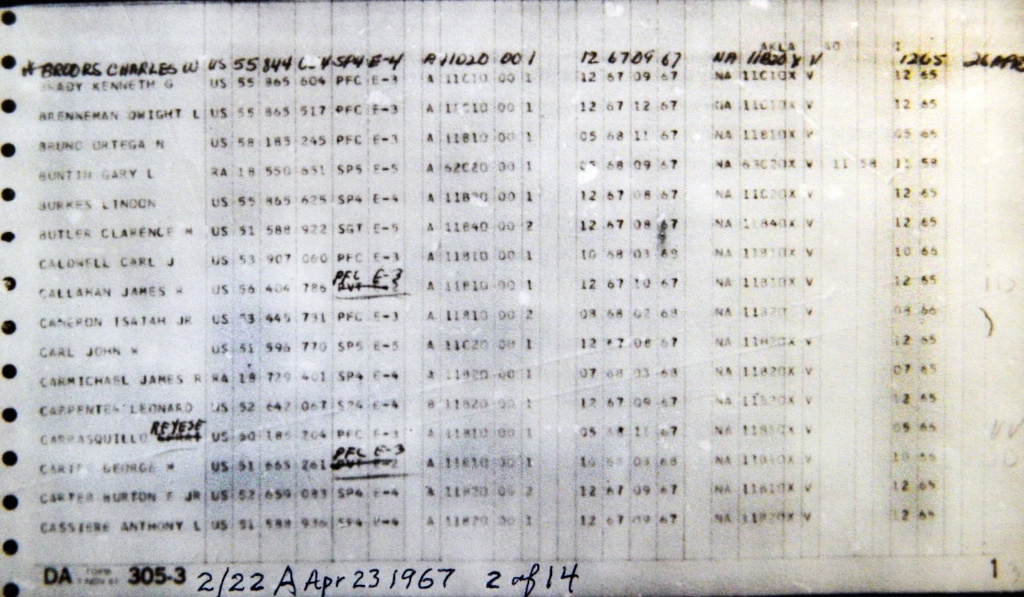 AKLA
BROORS CHARLES W US 55 844 SP4 E-4 A 11020 00 1 12 67 09 67 NA 11B20 V 1265
KENNETH G US 55 865 604 PFC E-3 A 11C10 00 1 12 67 09 67 NA 11C10X V 12 65
BRENNEMAN DWIGHT L US 55 865 517 PFC E-3 A 11C10 00 1 12 67 12 67 NA 11C10X V 12 65
BRUNO ORTEGA N US 58 185 245 PFC E-3 A 11B10 00 1 05 68 11 67 NA 11B10X V 05 66
BUNTIN GARY L RA 18 550 651 SP5 E-5 A 62C20 00 1 68 09 67 NA V 11 58 11 58
BURKES LINDON US 55 865 625 SP4 E-4 A 11B20 00 1 12 67 08 67 NA 11C20X V 12 65
BUTLER CLARENCE M US 51 588 922 SGT E-5 A 11B40 00 2 12 67 08 67 NA 11B40X V 12 65
CALDWELL CARL J US 53 907 060 PFC E-3 A 11B10 00 1 10 68 03 68 NA 11B10X V 10 66
CALLAHAN JAMES R US 56 404 786 PFC E-3 A 11B10 00 1 12 67 10 67 NA 11B10X V 12 65
CAMERON ISAIAH JR US 53 445 731 PFC E-3 A 11B10 00 2 08 68 02 68 NA V 66
CARL JOHN W US 51 596 770 SP5 E-5 A 11C20 00 1 12 67 08 67 NA V 12 65
CARMICHAEL JAMES R RA 18 729 401 SP4 E-4 A 11B20 00 1 07 68 03 68 NA 11B20X V 07 65
CARPENTER LEONARD US 52 642 067 SP4 E-4 B 11B20 00 1 12 67 09 67 NA 11B20X V 12 65
CARRASQUILLO REYESE US 50 185 204 PFC E-3 A 11B10 00 1 05 68 11 67 NA 11B10X V 05 66
CARTER GEORGE M US 51 665 261 PFC E-3 A 11B10 00 1 10 68 03 68 NA 11B10X V 10 66
CARTER BURTON F JR US 52 659 083 SP4 E-4 A 11B20 00 2 12 67 09 67 NA 11B10X V 12 65
CASSIERE ANTHONY L US 51 588 936 SP4 E-4 A 11B20 00 1 12 67 09 67 NA 11B20X V 12 65
DA FORM 305-3 2/22 A Apr 23 1967 2 of 14 1